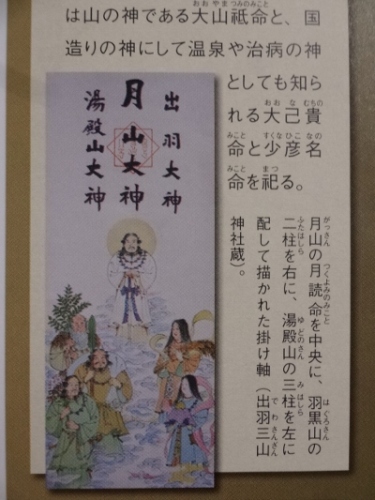 は山の神である大山祇命と、国
造りの神にして温泉や治病の神
としても知ら
れる大己貴
命と少彦名
命を祀る。
出羽大神
月山大神
湯殿山大神
月山の月読命を中央に、羽黒山の
二柱を右に、湯殿山の三柱を左に
配して描かれた掛け軸（出羽三山
神社蔵）。